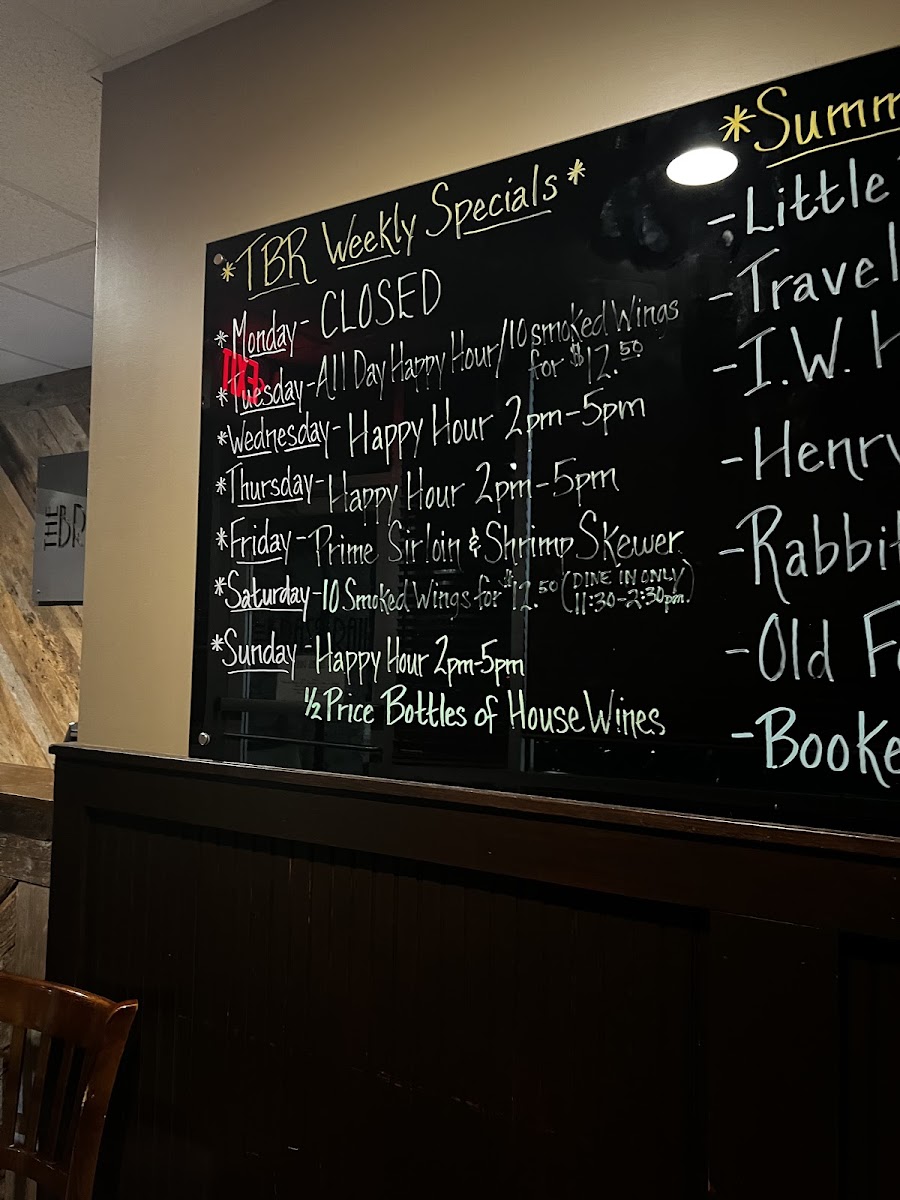 *TBR Weekly Specials*
*Monday- CLOSED
*Tuesday-All Day Happy Hour/10 smoked Wings
for $12.50
*Wednesday- Happy Hour 2pm-5pm
*Thursday- Happy Hour 2pm-5pm
*Friday-Prime Sirloin & Shrimp Skewer
*Saturday-10 Smoked Wings for $12.50 (DINE IN ONLY
11:30-2:30pm)
*Sunday-Happy Hour 2pm-5pm
1/2 Price Bottles of House Wines
*Summ
-Little
-Travel
-I.W. H
-Henry
-Rabbit
-Old Fo
-Booke
THE